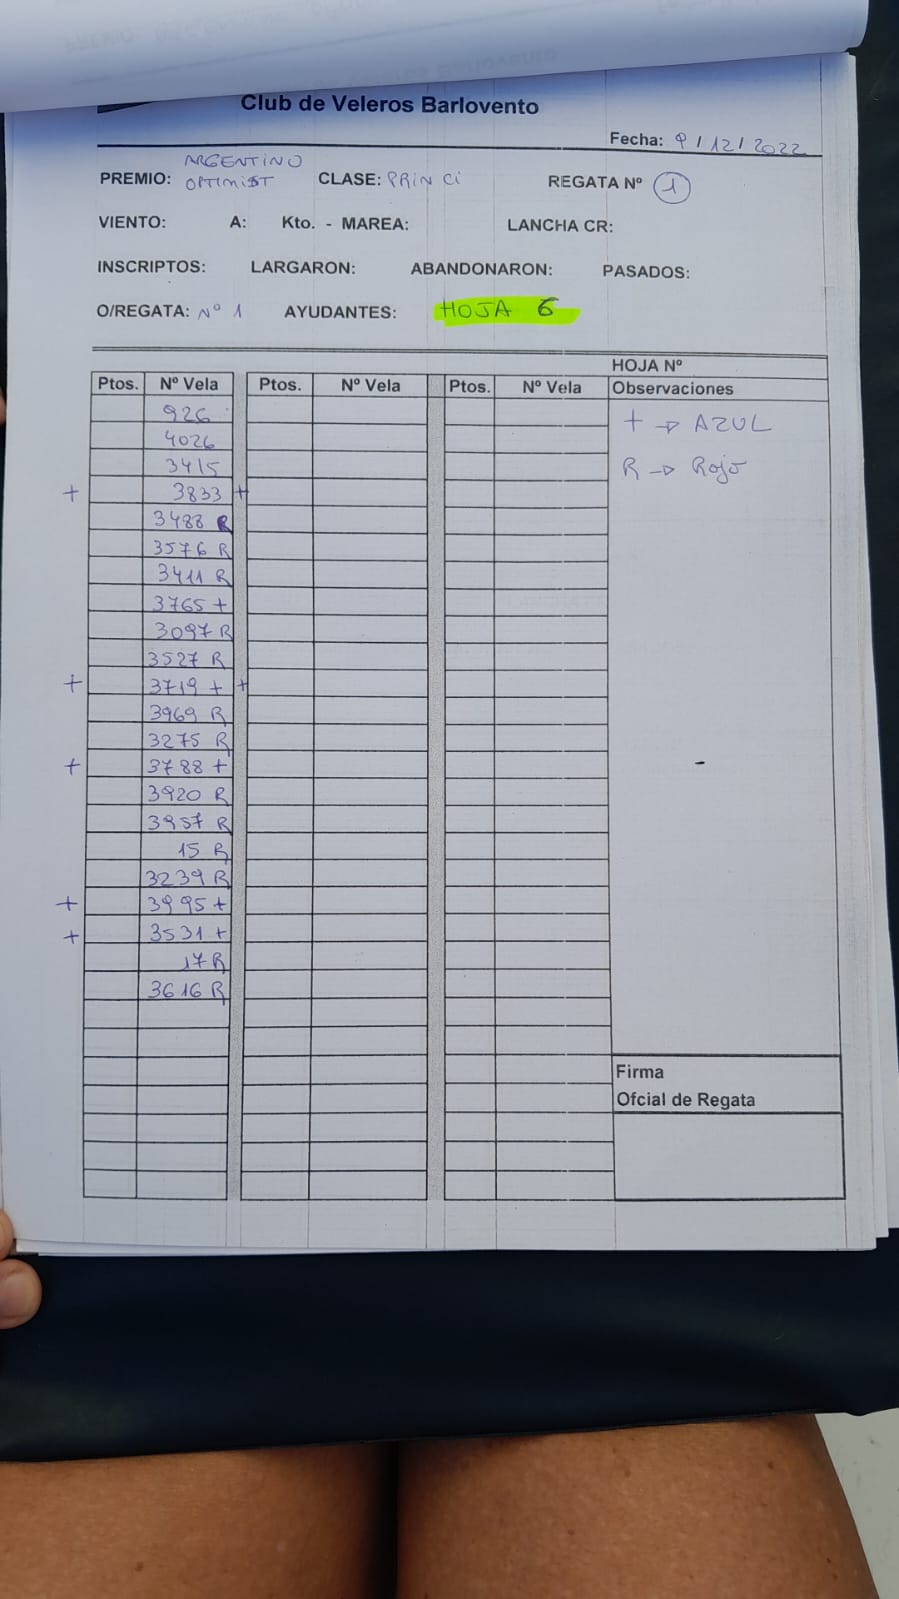 Club de Veleros Barlovento
Fecha: 9/12/2022
PREMIO: ARGENTINO OPTIMIST CLASE: PRINCI REGATA Nº 1
VIENTO: A: Kto. - MAREA: LANCHA CR:
INSCRIPTOS: LARGARON: ABANDONARON: PASADOS:
O/REGATA: Nº 1 AYUDANTES: HOJA 6
HOJA Nº
Ptos. Nº Vela Ptos. Nº Vela Ptos. Nº Vela Observaciones
926
4026
3415
+ 3833 +
3488 R
3576 R
3411 R
3765 +
3097 R
3527 R
+ 3719 + +
3969 R
3275 R
+ 3788 +
3920 R
3957 R
15 R
3239 R
+ 3995 +
+ 3531 +
17 R
3616 R
+ → AZUL
R → Rojo
Firma
Ofcial de Regata